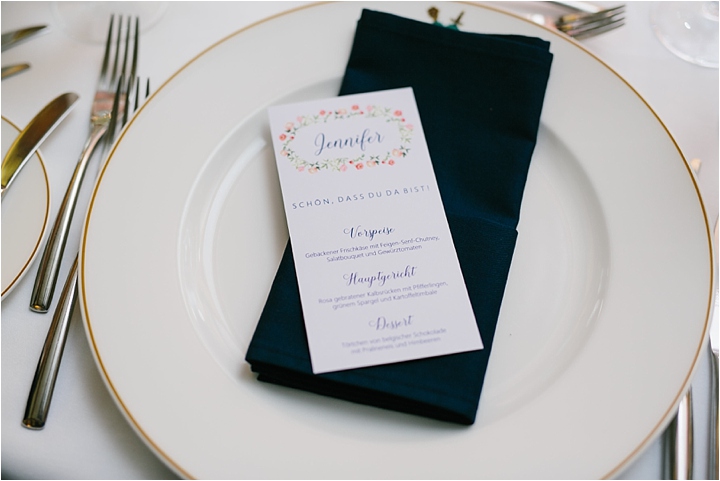 Jennifer
SCHÖN, DASS DU DA BIST!
Vorspeise
Gebackener Frischkäse mit Feigen-Senf-Chutney,
Salatbouquet und Gewürztomaten
Hauptgericht
Rosa gebratener Kalbsrücken mit Pfifferlingen,
grünem Spargel und Kartoffeltimbale
Dessert
Törtchen von belgischer Schokolade
mit Pralineneis und Himbeeren